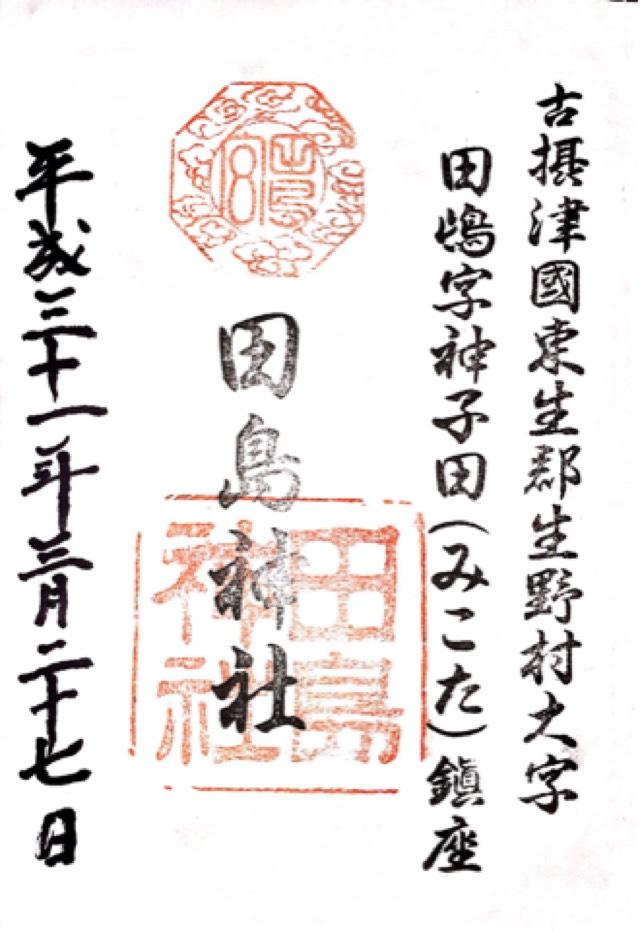 古摂津國東生郡生野村大字
田嶋字神子田(みこた)鎮座
田島神社
田島
神社
平成三十一年三月二十七日